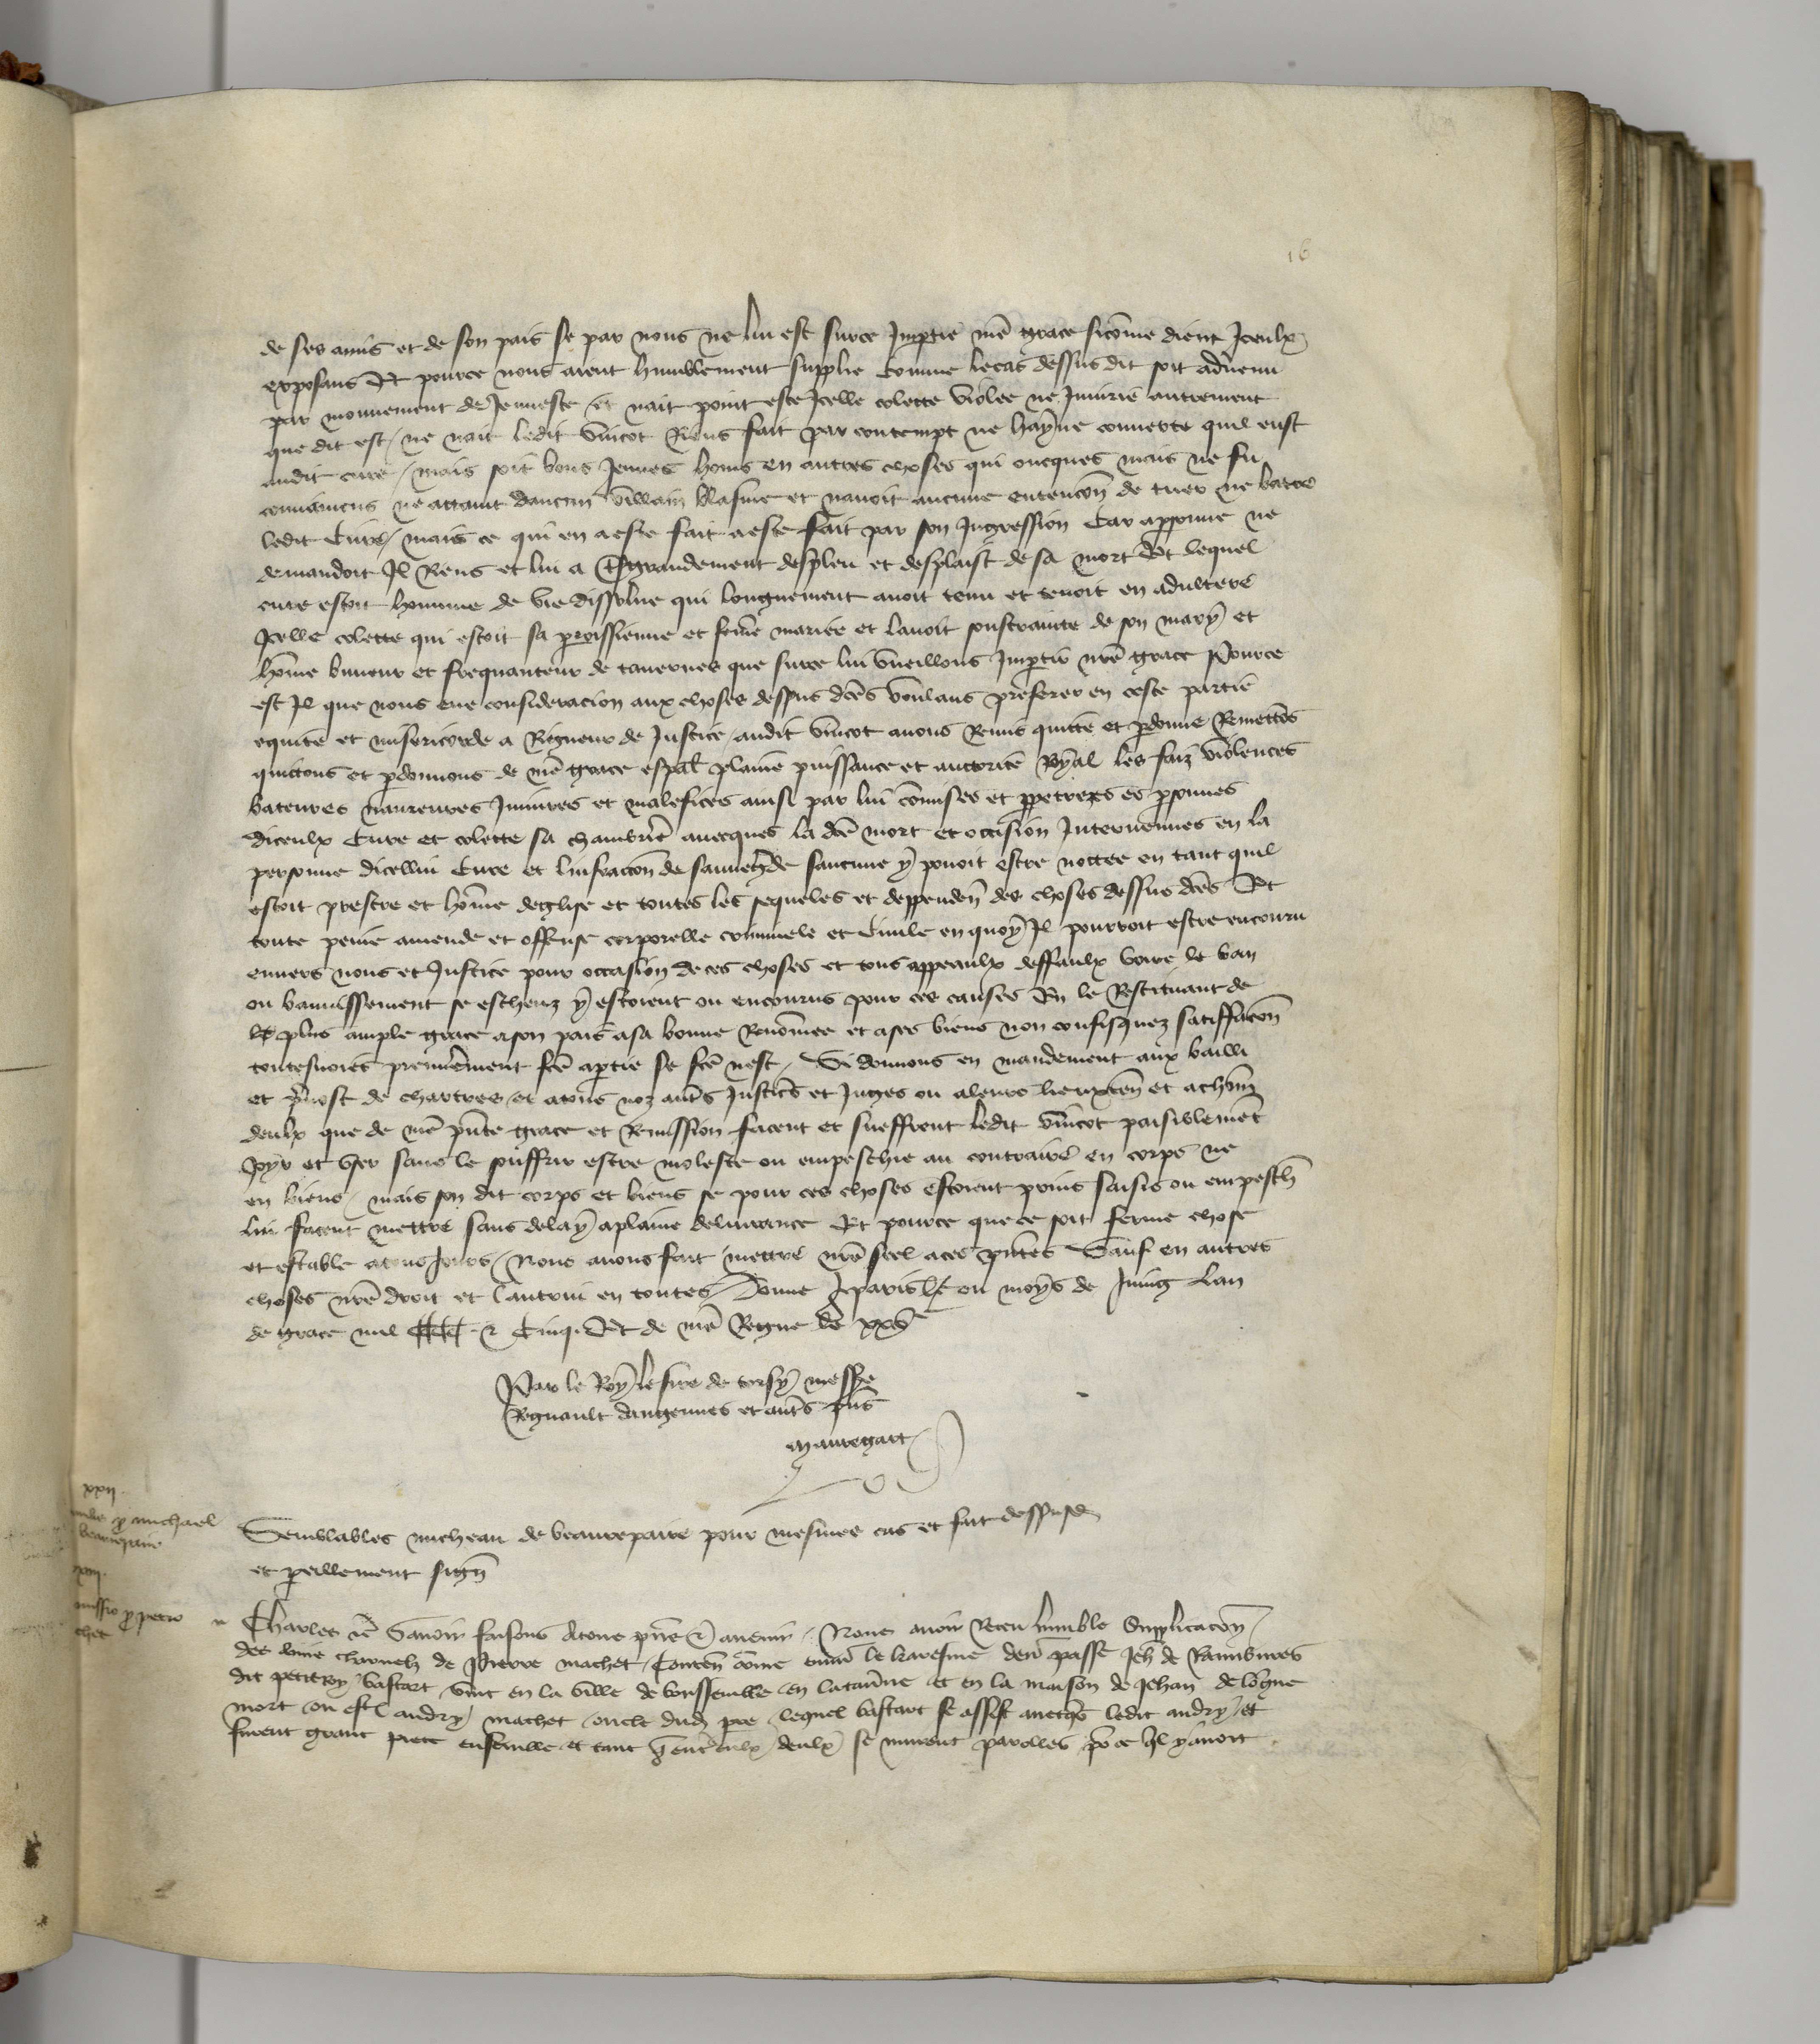 16
de ses amis et de son pais se par nous ne lui est surce Impartie nre grace sicome dient Iceulx
exposans Et pource nous aient humblement supplie Comme lecas dessusdit soit advenu
par mouuement de Jeunesse et nait point este Icelle colette violee ne Iniuriee autrement
que dit est / ne nait ledit vincot Riens fait par contempt ne hayne couuerte quil eust
audit cure / mais soit bons Jeunes homs en autres choses qui oncques mais ne fu
conuaincus ne attaint daucun villain blasme et nauoit aucune entencon de tuer ne batre
ledit Cure / mais ce qui en a este fait a este fait par son Ingression Car apsonne ne
demandoit Il Riens et lui a grandement despleu et desplaist de sa mort Et lequel
cure estoit homme de vie dissolue qui longuement auoit tenu et tenoit en adultere
Icelle colette qui estoit sa parroissienne et feme mariee et lauoit soustraitte de son mary et
home buueur et frequanteur de tauernes que surce lui vueillons Impartir nre grace Pource
est Il que nous eue consideracion aux choses dessus dces voulans preferer en ceste partie
equite et misericorde a Rigueur de Justice / audit vincot auons Remis quitte et pdonne Remettons
quictons et pdonnons de nre grace espal plaine puissance et auctorite Royal les faiz violences
bateures naureures Iniures et malefices ainsi par lui commises et ppetrees es psonnes
diceulx Cure et colette sa chambrie auecques la dce mort et occision Interuenues en la
personne dicellui Cure et linfraccon de sauuegde saucune y pouoit estre nottee en tant quil
estoit prestre et home deglise et toutes les sequeles et deppenden des choses dessus dces Et
toute peine amende et offense corporelle criminele et Ciuile en quoy Il pourroit estre encouru
enuers nous et Justice pour occasion de ces choses et tous appeaulx deffaulx voire le ban
ou bannissement se escheuz y estoient ou encourus pour ces causes En le Restituant de
plus ample grace a son pais a sa bonne Renommee et a ses biens non confisquez satiffacon
toutesuoies premierement fce aptie se fce nest / Si donnons en mandement aux bailli
et puost de chartres et atous noz autres Justices et Juges ou aleurs lieuxten et a chun
deulx que de nre pnte grace et Remission facent et sueffrent ledit vincot paisiblemet
Joyr et user sans le souffrir estre moleste ou empeschie au contraire en corps ne
en biens / mais son dit corps et biens se pour ces choses estoient prins saisis ou empesch
lui facent mettre sans delay aplaine deliurance Et pource que ce soit ferme chose
et estable atous Jours / Nous auons fait mettre nre seel aces pntes Sauf en autres
choses nre droit et lautrui en toutes / Donne Aparis ou moys de Juing Lan
de grace mil CCCC & Cinq. Et de nre Regne le xxve
Par le Roy / le sire de torsy messe
Regnault dangennes et autres pns
Mauregart
xxij.
p michael
beaurepaire
Semblables micheau de beaurepaire pour mesmes cas et fut dessusd
et paillement sign
xxiij.
missio p petro
chet
Charles &c Sauoir faisons Atous pns & auenir / Nous auoir Receu humble Supplicacon
des amis charnelz de Pierre machet / Conten come enuir le karesme den passe Jeh de Rambures
dit petit Roy bastart vint en la ville de en la taune et en la maison de Jehan de
mort ou est andry machet oncle dud pre lequel bastart se assist auecqs ledit andry et
furent grant piece ensemble et tant que entre eulx deulx se murent parolles po ce quil y auoit